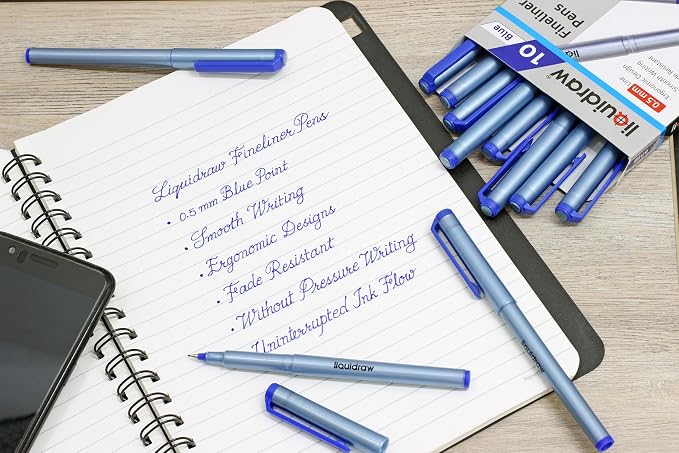 Liquidraw Fineliner Pens
• 0.5 mm Blue Point
• Smooth Writing
• Ergonomic Designs
• Fade Resistant
• Without Pressure Writing
Uninterrupted Ink Flow
liquidraw
liquidraw
liquidraw
Fineliner
Pens
10
Blue
liquidraw
0.5 mm
Line
Ergonomic Design
Smooth Writing
Fade Resistant